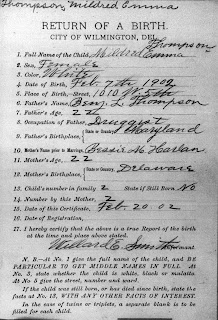 Thompson, Mildred Emma
RETURN OF A BIRTH.
CITY OF WILMINGTON, DEL.
Thompson
1 Full Name of the Child, Mildred Emma
2 Sex, Female
3 Color, White
4 Date of Birth, Feb. 7th 1902
5 Place of Birth,—Street, 1010 W. 5th
6 Father's Name, Benj. L. Thompson
7 Father's Age, 22
8 Occupation of Father, Druggist
9 Father's Birthplace, State or Country, Maryland
10 Mother's Name prior to Marriage, Bessie M. Harlan
11 Mother's Age, 22
12 Mother's Birthplace, State or Country, Delaware
13 Child's number in family 2 State if Still Born, No
14 Number by this Mother, 2
15 Date of this Certificate, Feb. 20. 02
16 Date of Registration,
17 I hereby certify that the above is a true Report of the birth at the time and place above stated.
Willard E. Smith
N. B.—At No. 1 give the full name of the child, and BE
PARTICULAR TO GET MIDDLE NAMES IN FULL. At
No. 3, state whether the child is white, black or mulatto.
At No. 5 give the street, number and ward.
If the child was still born, or has died since birth, state the
facts at No. 13, WITH ANY OTHER FACTS OF INTEREST.
In the case of twins or triplets, a separate blank is to be
filled for each child.